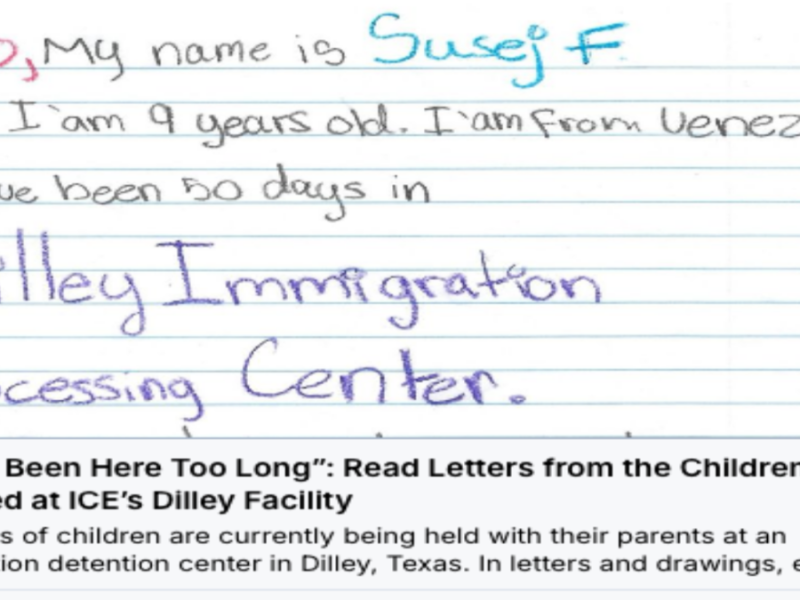 , My name is Susej F.
I'am 9 years old. I'am from Venez
ve been 50 days in
illey Immigration
cessing Center.
Been Here Too Long”: Read Letters from the Children
ed at ICE’s Dilley Facility
s of children are currently being held with their parents at an
ion detention center in Dilley, Texas. In letters and drawings, e